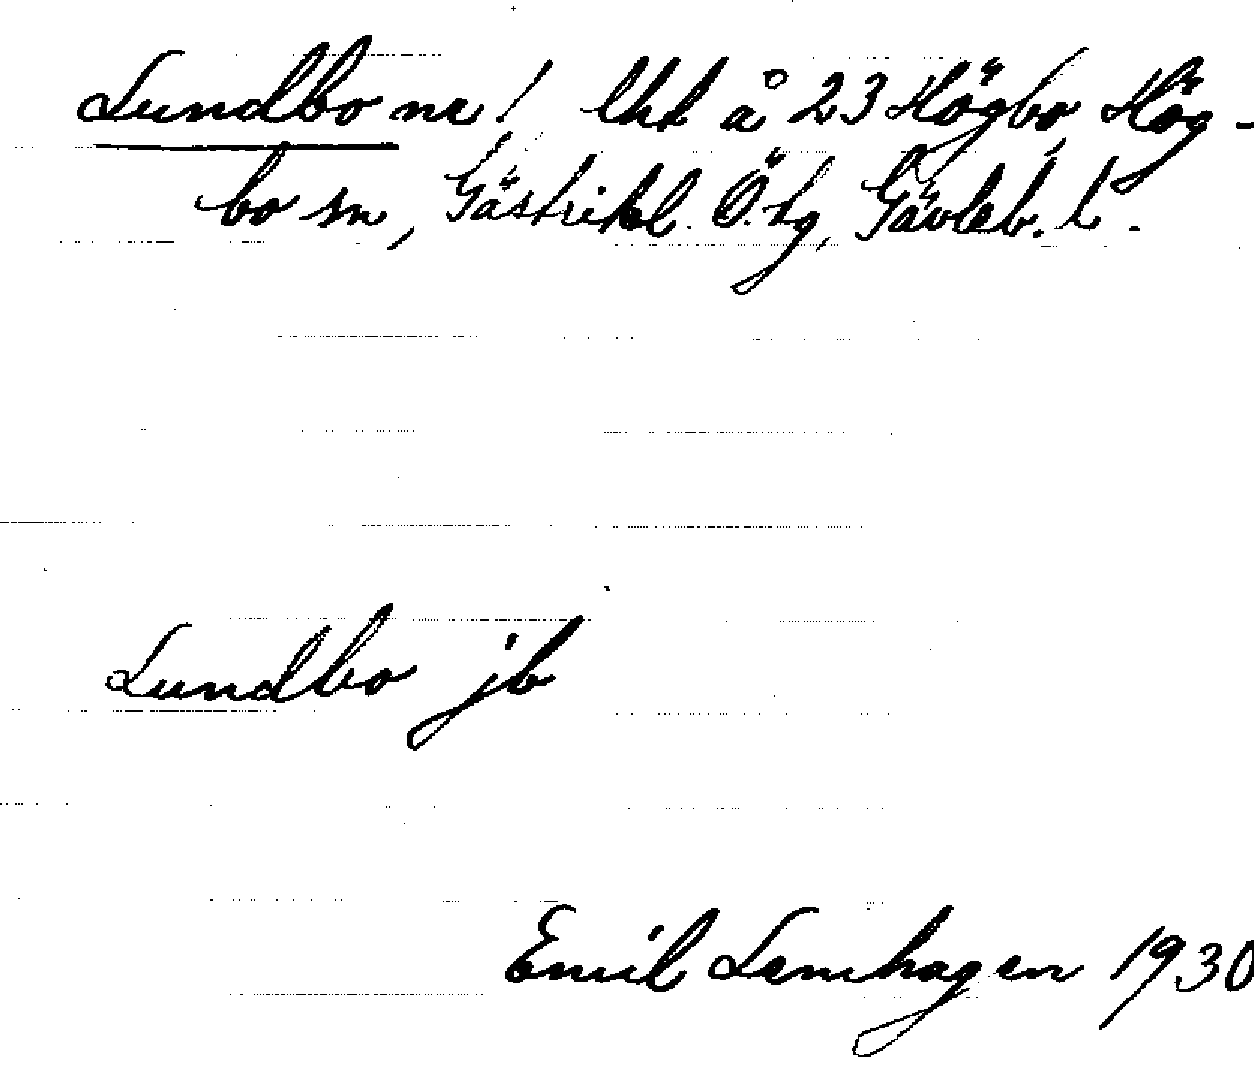 Lundbo nr 1 lht å 23 Högbo, Hög-
bo sn, Gästrikl. Ö. tg, Gävleb. l.
Lundbo jb
Emil Lemhagen 1930